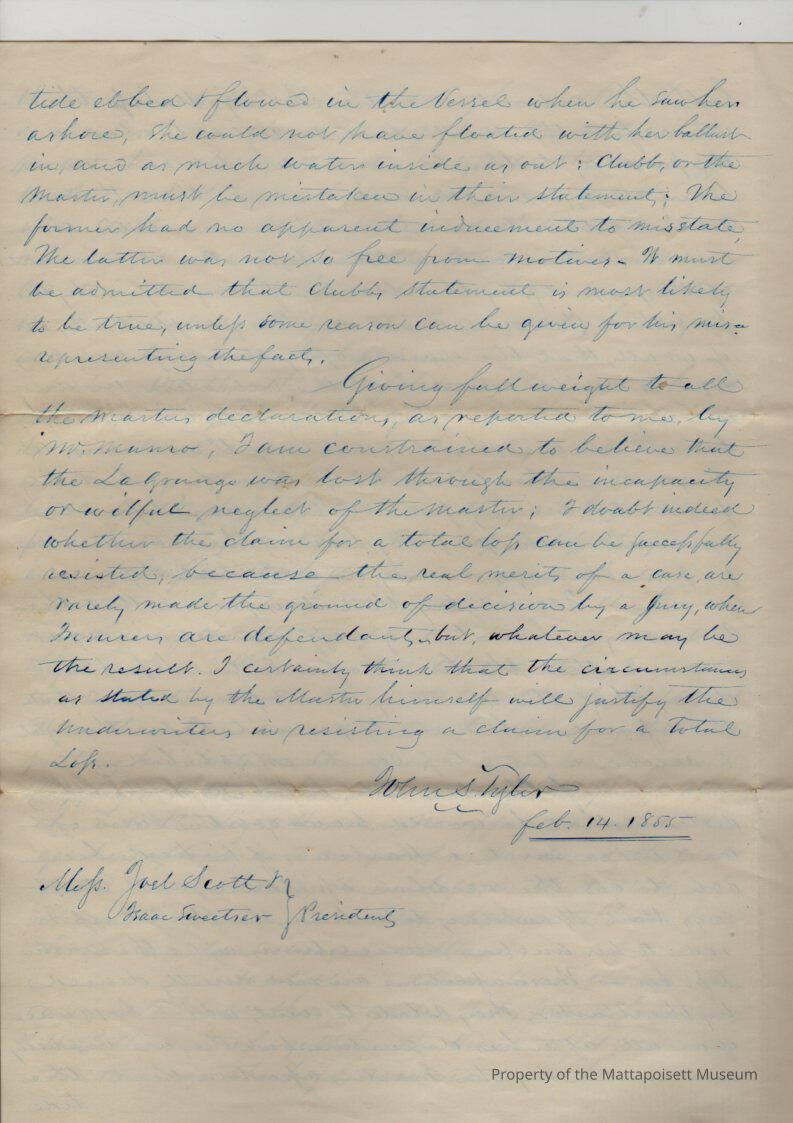 tide ebbed & flowed in the Vessel when he saw her
ashore, she could not have floated with her ballast
in, and as much water inside as out: Clubb, or the
Master, must be mistaken in their statement; The
former had no apparent inducement to misstate,
The latter was not so free from motives - It must
be admitted that Clubbs statement is most likely
to be true, unless some reason can be given for his mis=
representing the facts.
Giving full weight to all
the Masters declarations, as reported to me, by
Mr. Munro, I am constrained to believe that
the La Grange was lost through the incapacity
or wilful neglect of the Master; I doubt indeed
whether the claim for a total loss can be successfully
resisted, because the real merits of a case, are
rarely made the ground of decision by a Jury, when
Insurers are defendants, but, whatever may be
the result. I certainly think that the circumstances
as stated by the Master himself will justify the
Underwriters in resisting a claim for a total
Loss.
John S. Tyler
Feb. 14. 1855
Mess. Joel Scott &
Isaac Sweetser } Presidents
Property of the Mattapoisett Museum